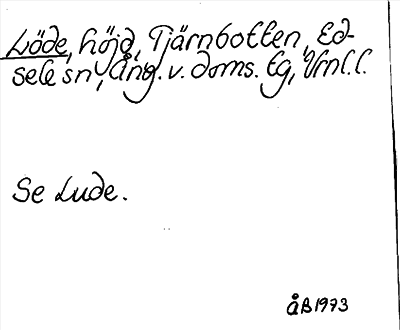 Löde, höjd, Tjärnbotten, Ed-
sele sn, Ång. v. doms. tg, Vrnl. l.
Se Lude.
ÅB 1973